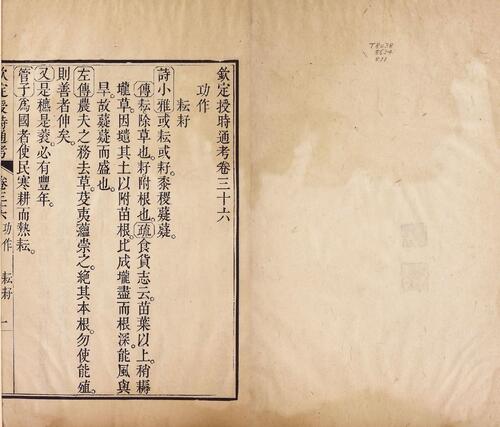 欽定授時通考卷三十六
功作
耘耔
詩小雅或耘或耔。黍稷薿薿。
傳耘除草也。耔附根也。疏食貨志云。苗葉以上。稍耨
壠草。因壝其土以附苗根。比成壠盡而根深。能風與
旱。故薿薿而盛也。
左傳農夫之務去草。芟夷蘊崇之。絕其本根。勿使能殖。
則善者伸矣。
又是穮是蓘。必有豐年。
管子為國者使民寒耕而熱耘。
欽定授時通考 卷三十六 功作 耘耔 一